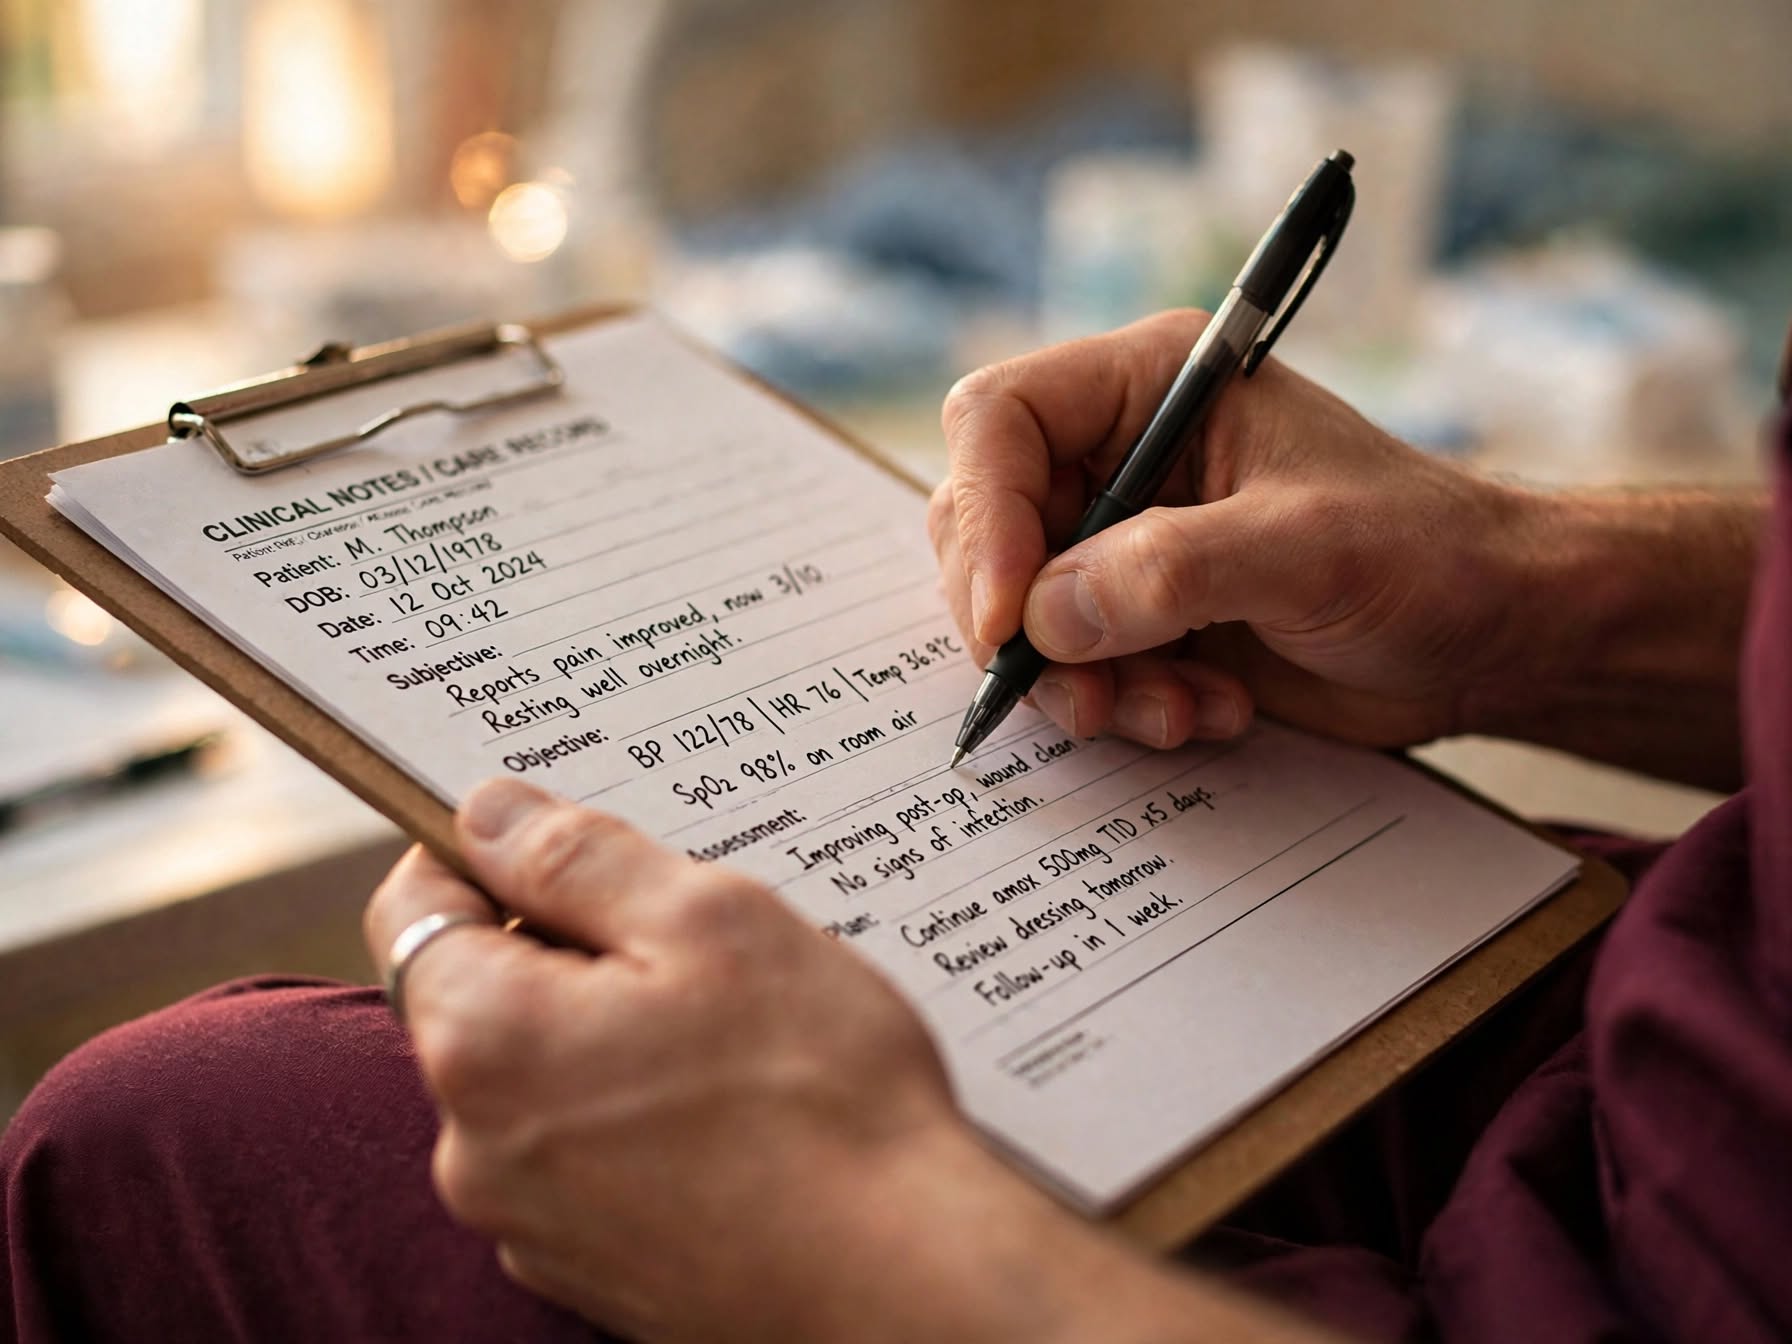 CLINICAL NOTES / CARE RECORD
Patient: M. Thompson
DOB: 03/12/1978
Date: 12 Oct 2024
Time: 09:42
Subjective:
Reports pain improved, now 3/10.
Resting well overnight.
Objective:
BP 122/78 | HR 76 | Temp 36.9°C
SpO2 98% on room air
Assessment:
Improving post-op, wound clean
No signs of infection.
Plan:
Continue amox 500mg TID x5 days.
Review dressing tomorrow.
Follow-up in 1 week.